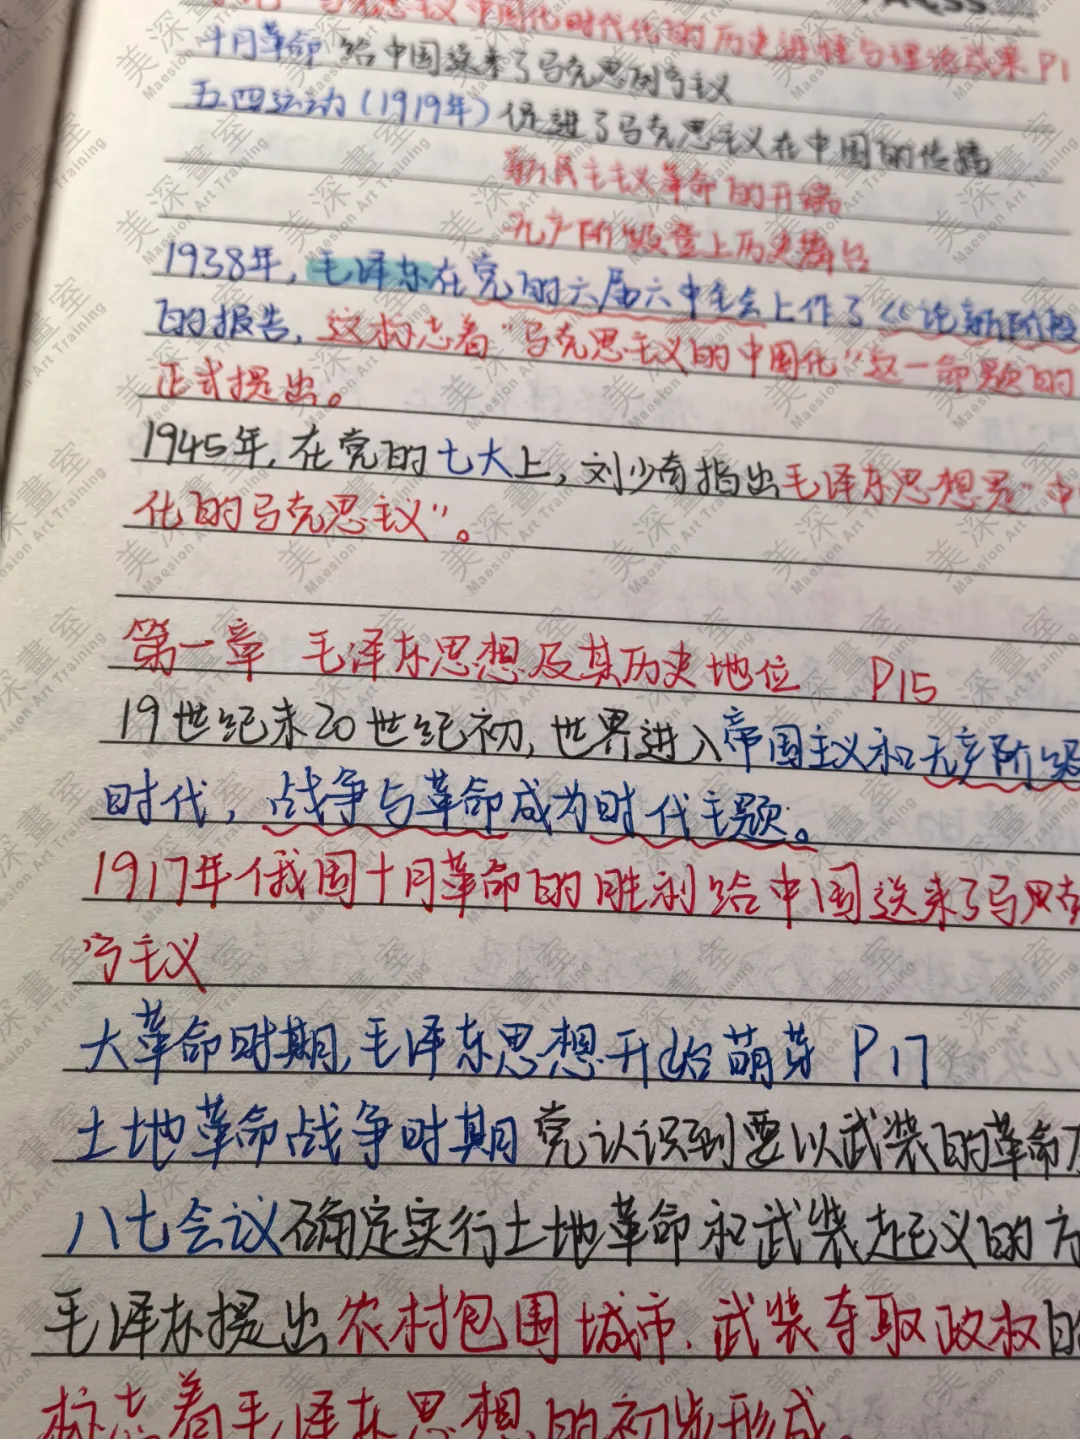 马克思主义中国化时代化的历史进程与理论成果 P1
十月革命给中国送来了马克思列宁主义
五四运动(1919年)促进了马克思主义在中国的传播
新民主主义革命的开端
无产阶级登上历史舞台
1938年,毛泽东在党的六届六中全会上作了《论新阶段
的报告,这标志着“马克思主义的中国化”这一命题的
正式提出。
1945年,在党的七大上,刘少奇指出毛泽东思想是“中
化的马克思主义”。
第一章 毛泽东思想及其历史地位 P15
19世纪末20世纪初,世界进入帝国主义和无产阶级
时代,战争与革命成为时代主题。
1917年俄国十月革命的胜利给中国送来了马思克
宁主义
大革命时期,毛泽东思想开始萌芽 P17
土地革命战争时期党认识到要以武装的革命
八七会议确定实行土地革命和武装起义的方
毛泽东提出农村包围城市、武装夺取政权的
标志着毛泽东思想的初步形成。
美深畫室
Maesion Art Training